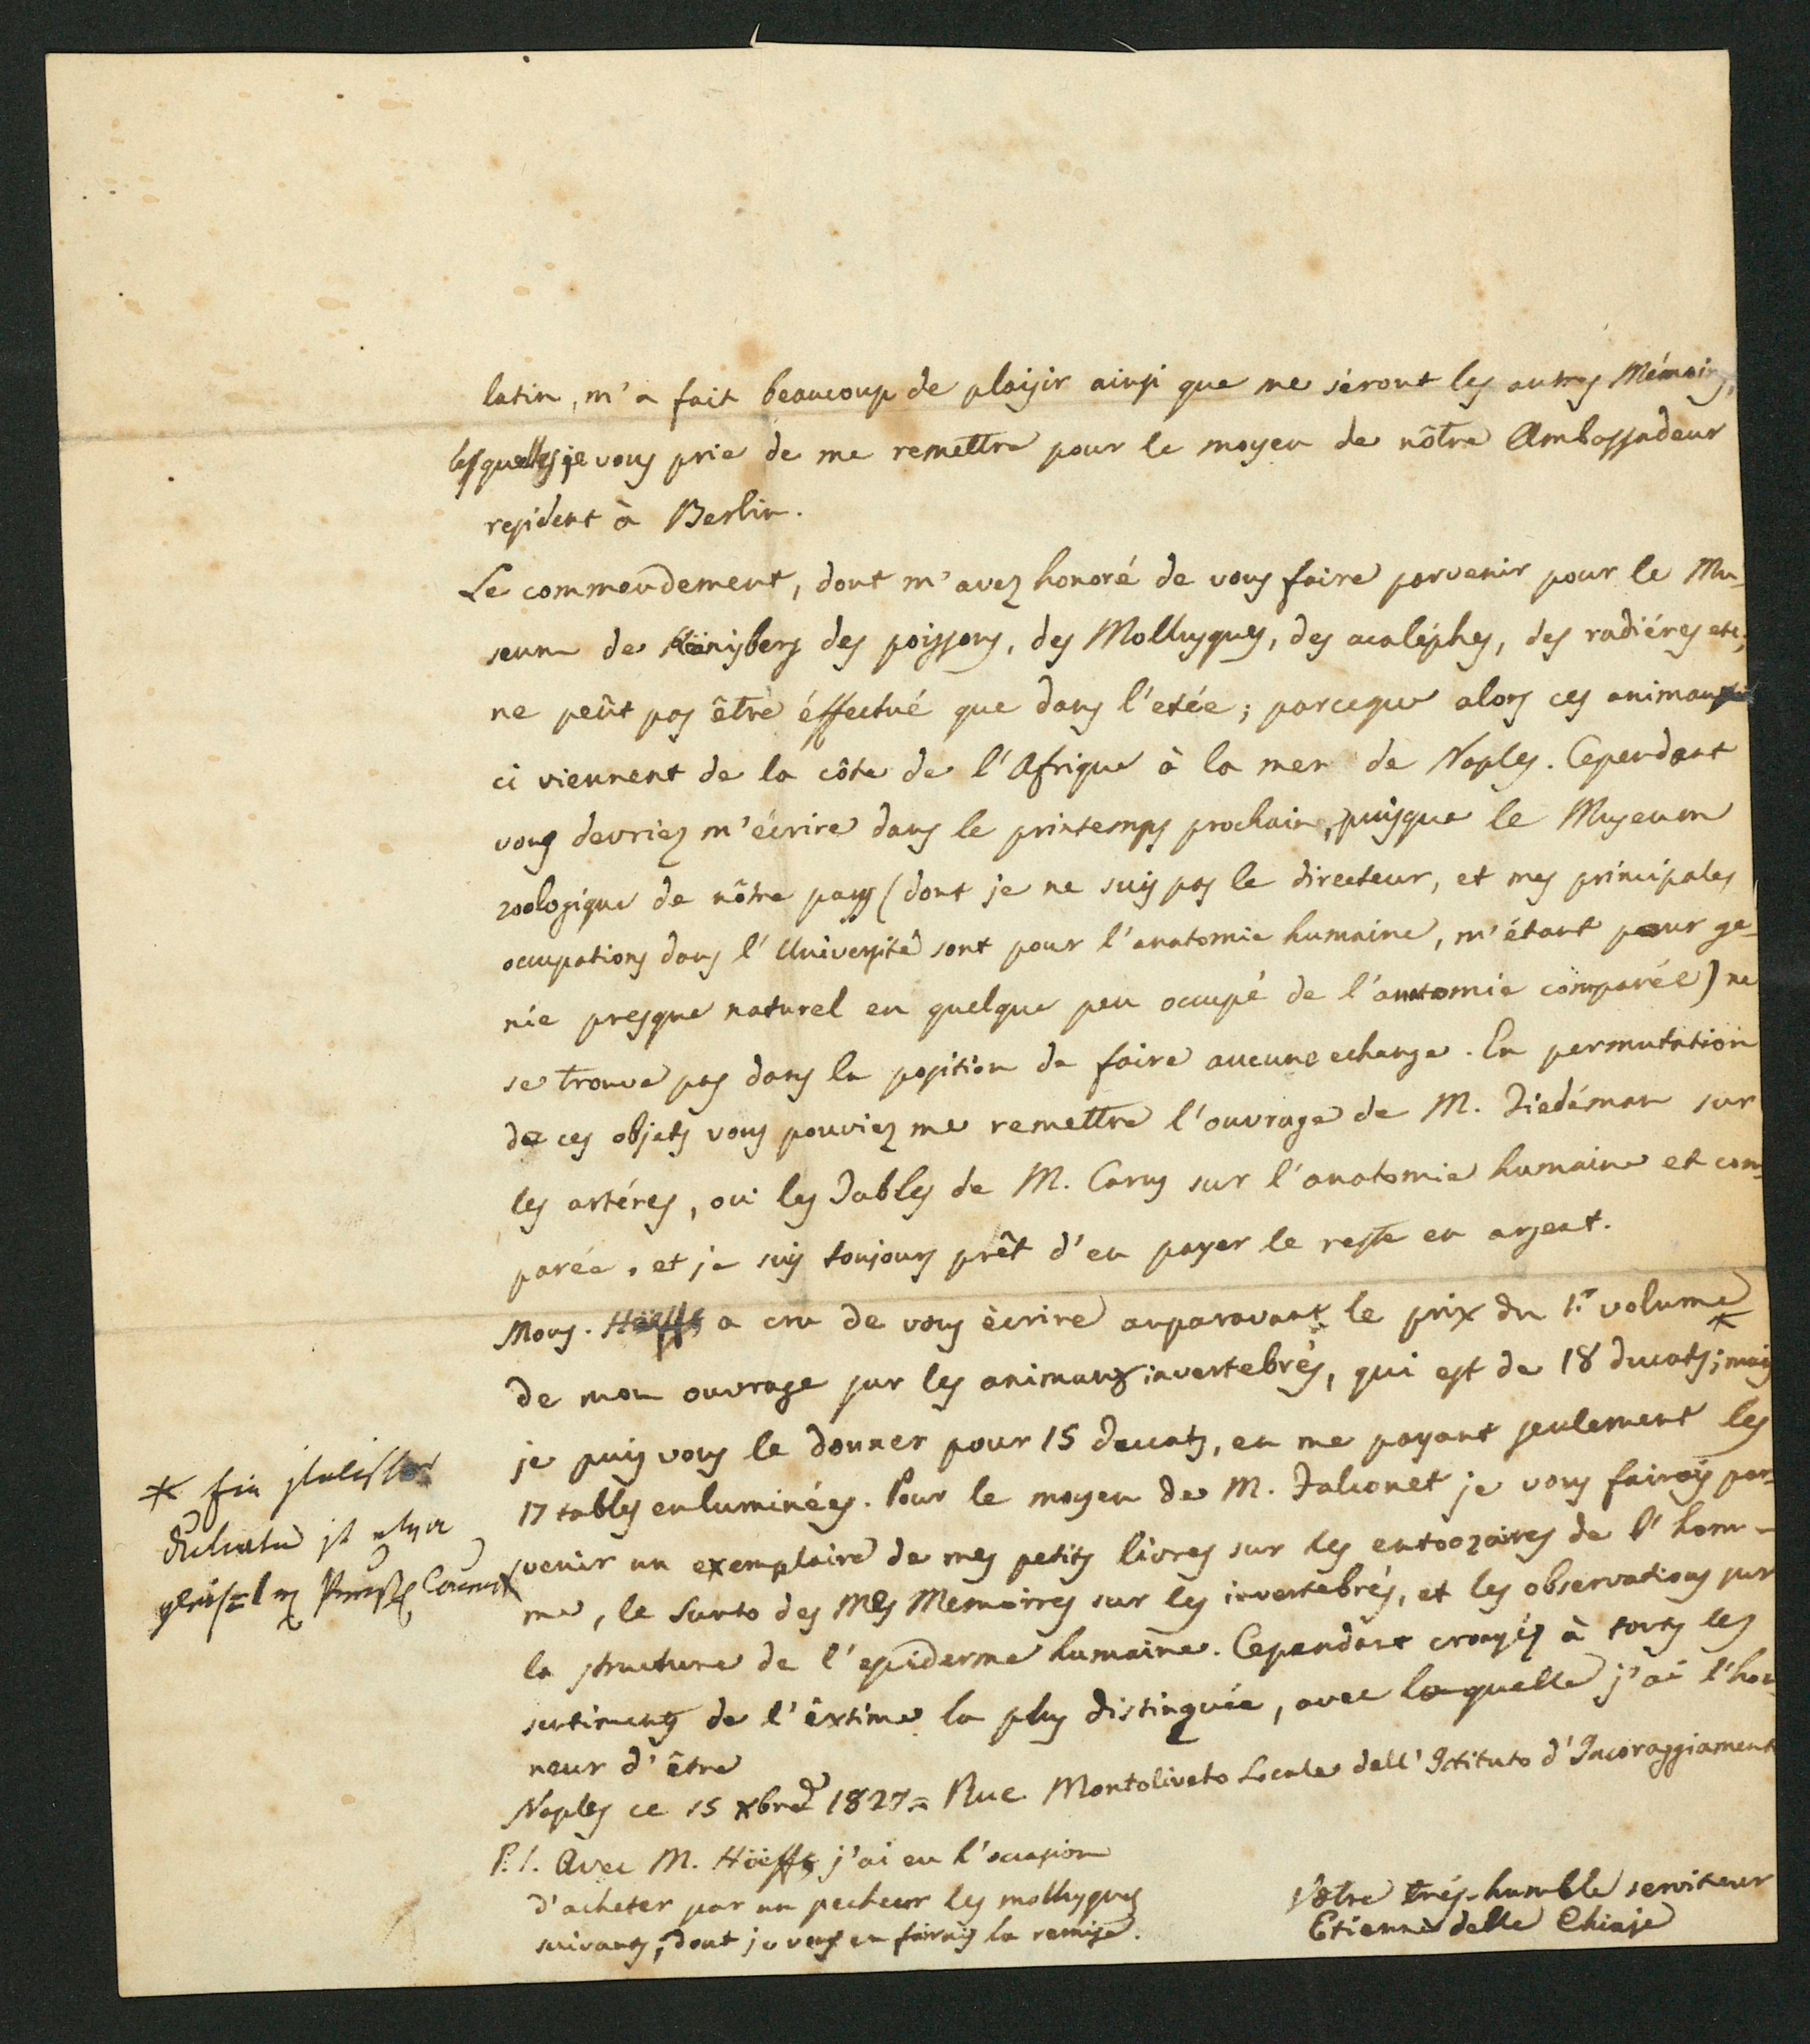 latin, m'a fait beaucoup de plaisir ainsi que me séront les autres Mémoires,
lesquelles je vous prie de me remettre pour le moyen de nôtre Ambassadeur
resident à Berlin.
Le commendement, dont m'avez honoré de vous faire parvenir pour le Mu-
seum de Könisberg des poissons, des Mollusques, des acaléphes, des radiéres etc,
ne peût pas être éffectué que dans l'etée; parceque alors ces animaux
ci viennent de la côte de l'Afrique à la mer de Naples. Cependant
vous devriez m'écrire dans le printemps prochain, puisque le Museum
zoologique de nôtre pays (dont je ne suis pas le directeur, et mes principales
occupations dans l'Université sont pour l'anatomie humaine, m'étant pour ge-
nie presque naturel en quelque peu occupé de l'anatomie comparée) ne
se trouve pas dans la position de faire aucune echange. En permutation
de ces objets vous pouviez me remettre l'ouvrage de M. Tiedéman sur
les artéres, oui les Tables de M. Carus sur l'anatomie humaine et com-
parée, et je suis toujours prêt d'en payer le reste en argent.
Mons. Höeffs a cru de vous ècrire auparavant le prix du 1.r volume *
de mon ouvrage sur les animaux invertebrés, qui est de 18 ducats; mais
je puis vous le donner pour 15 ducats, en me payant seulement les
17 tables enluminées. Pour le moyen de M. Falconet je vous fairais par-
venir un exemplaire de mes petits livres sur les entoozoaires de l'hom-
me, le Sunto des Mes Memoires sur les invertebrés, et les observations sur
la structure de l'epiderme humaine. Cependant croayéz à touts les
sentiments de l'êxtime la plus distinquée, avec laquelle j'ai l'hon-
neur d'être
Naples ce 15 Xbre 1827 = Rue Montoliveto Locale dell'Istituto d'Incoraggiament
P.S. Avec M. Höeffs j'ai eu l'occasion
d'acheter par un pecheur les mollusques
suivants, dont je vous en fairais la remise.
Vôtre trés-humble serviteur
Etienne delle Chiaje
* Ein
Ducaten ist etwa